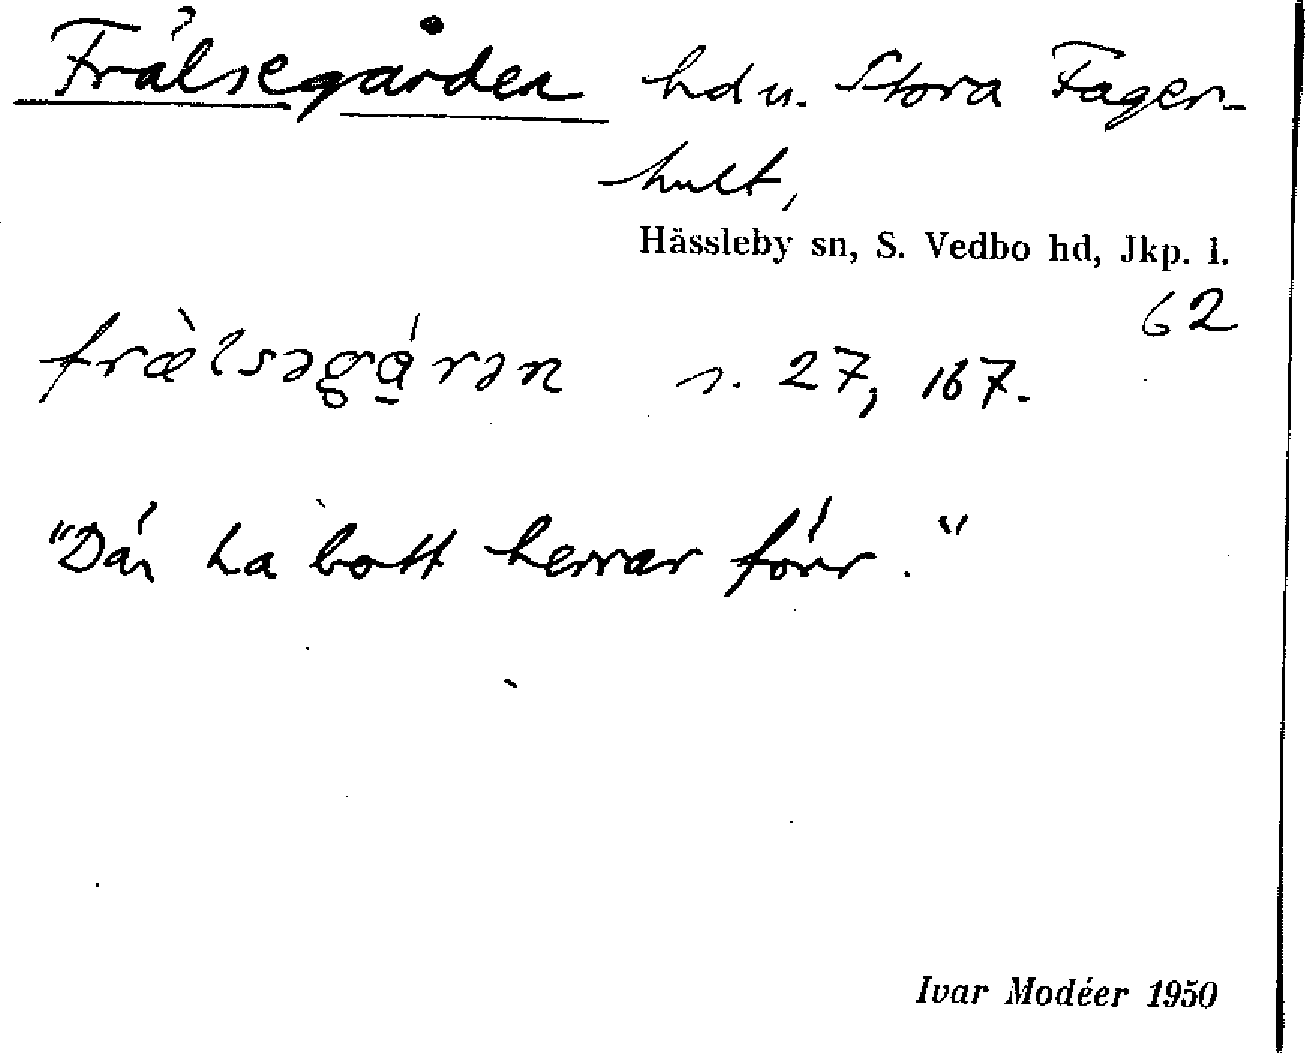 Frälsegården hd u. Stora Fager-
hult,
Hässleby sn, S. Vedbo hd, Jkp. l.
62
fræ̀lsəgɑ́rən s. 27, 167.
"Där ha bott herrar förr."
Ivar Modéer 1950